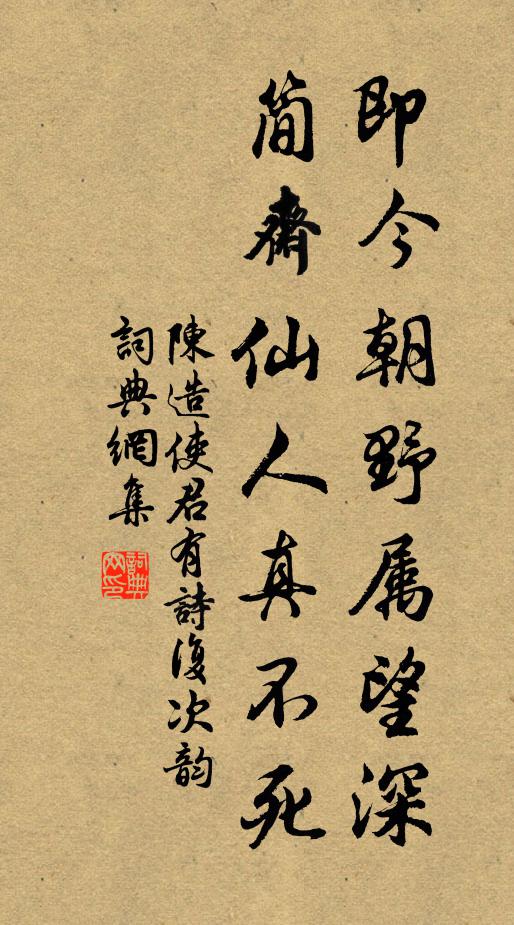 即今朝野属望深
简齋仙人真不死
陳造使君有詩復次韵
詞典網集
詞典網印